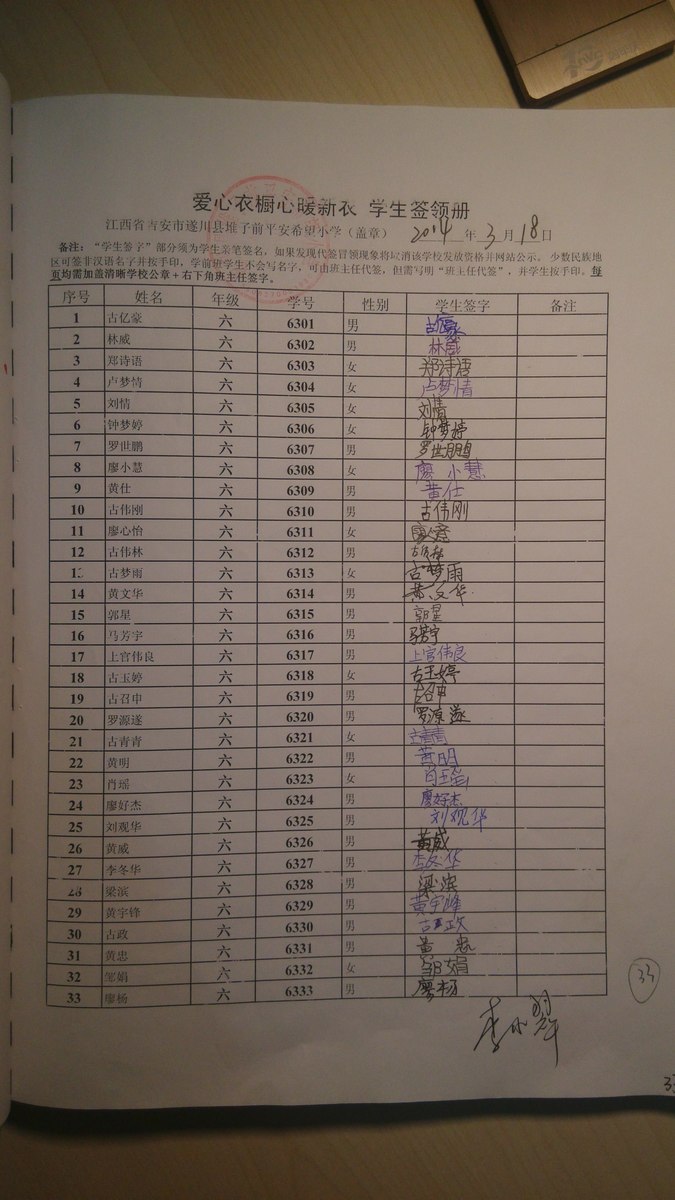 爱心衣橱心暖新衣 学生签领册
江西省吉安市遂川县堆子前平安希望小学（盖章） 2014 年 3 月 18 日
备注：“学生签字”部分须为学生亲笔签名，如果发现代签冒领现象将取消该学校发放资格并网站公示。 少数民族地
区可签非汉语名字并按手印，学前班学生不会写名字，可由班主任代签，但需写明“班主任代签”，并学生按手印。每
页均需加盖清晰学校公章+右下角班主任签字。
序号 姓名 年级 学号 性别 学生签字 备注
1 古亿豪 六 6301 男 古亿豪
2 林威 六 6302 男 林威
3 郑诗语 六 6303 女 郑诗语
4 卢梦情 六 6304 女 卢梦情
5 刘情 六 6305 女 刘情
6 钟梦婷 六 6306 女 钟梦婷
7 罗世鹏 六 6307 男 罗世鹏
8 廖小慧 六 6308 女 廖小慧
9 黄仕 六 6309 男 黄仕
10 古伟刚 六 6310 男 古伟刚
11 廖心怡 六 6311 女
12 古伟林 六 6312 男 古伟林
13 古梦雨 六 6313 女 古梦雨
14 黄文华 六 6314 男 黄文华
15 郭星 六 6315 男 郭星
16 马芳宇 六 6316 男 马芳宇
17 上官伟良 六 6317 男 上官伟良
18 古玉婷 六 6318 女 古玉婷
19 古召申 六 6319 男 古召申
20 罗源遂 六 6320 男 罗源遂
21 古青青 六 6321 女 古青青
22 黄明 六 6322 男 黄明
23 肖瑶 六 6323 女 肖瑶
24 廖好杰 六 6324 男 廖好杰
25 刘观华 六 6325 男 刘观华
26 黄威 六 6326 男 黄威
27 李冬华 六 6327 男 李冬华
28 梁滨 六 6328 男 梁滨
29 黄宇锋 六 6329 男 黄宇锋
30 古政 六 6330 男 古政
31 黄忠 六 6331 男 黄忠
32 邹娟 六 6332 女 邹娟
33 廖杨 六 6333 男 廖杨
33
李小翠